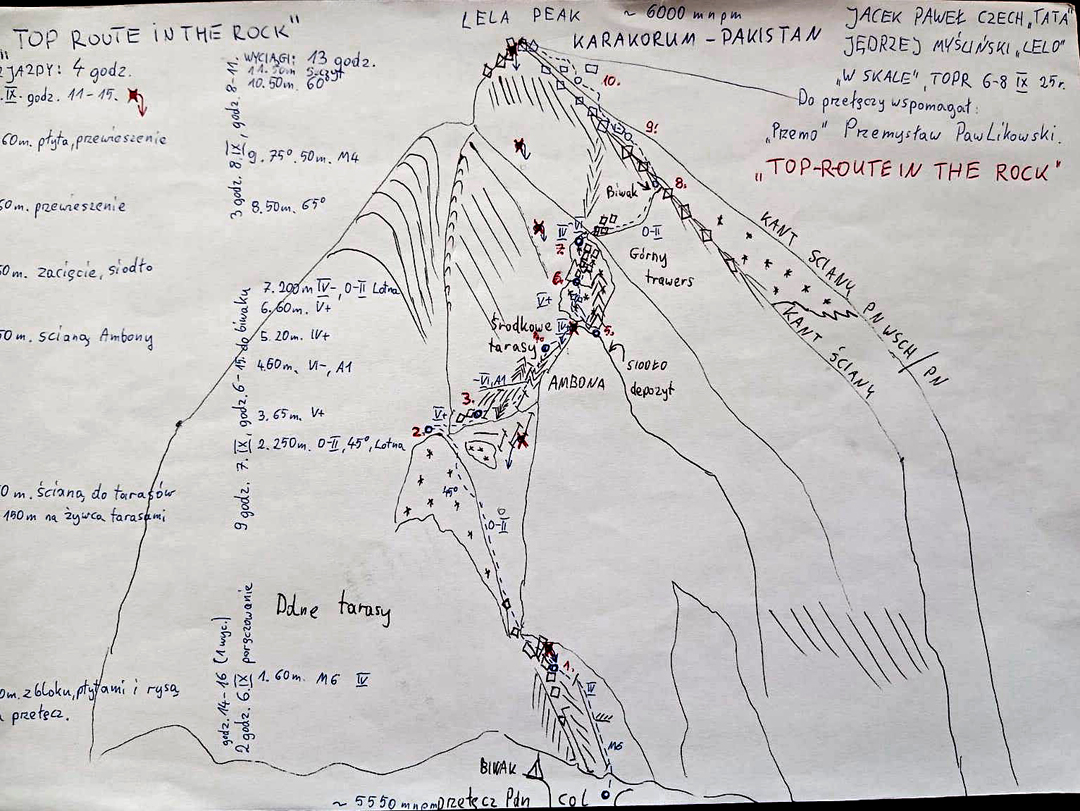 "TOP ROUTE IN THE ROCK"
ZJAZDY: 4 godz.
IX. godz. 11-15.
60m płyta, przewieszenie
50m. przewieszenie
50m. zacięcie, siodło
50m. ścianą Ambony
0 m. ścianą do tarasów
150m na żywca tarasami
0m. z bloku, płytami i rysą
przełęcz.
WYCIĄGI: 13 godz.
11. 50m Szczyt
10. 50m. 60°
9. 75°. 50m. M4
8. 50m. 65°
3 godz. 8 IX, godz. 8-11.
7. 200m IV-, 0-II Lotna
6. 60m. V+
5. 20m. IV+
4. 60m. VI-, A1
3. 65m. V+
2. 250m. 0-II, 45°, Lotna
9 godz. 7. IX, godz. 6-15. do biwaku
1. 60m. M6 IV
godz. 14-16 (1 wyc.)
2 godz. 6. IX poręczowanie
LELA PEAK ~ 6000 mnpm
KARAKORUM - PAKISTAN
JACEK PAWEŁ CZECH "TATA"
JĘDRZEJ MYŚLIŃSKI "LELO"
"W SKALE", TOPR 6-8 IX 25r.
Do przełęczy wspomagał:
"Przemo" Przemysław Pawlikowski.
"TOP-ROUTE IN THE ROCK"
10.
9.
Biwak
8.
0-II
Górny
trawers
KANT ŚCIANY PN WSCH / PN
KANT ŚCIANY
IV
7.
6.
V+
Środkowe
tarasy
IV+
5.
SIODŁO
depozyt
AMBONA
VI, A1
3.
V+
2.
45°
0-II
Dolne tarasy
1.
IV
M6
BIWAK
~ 5550 mnpm Przełęcz Pdn
COL